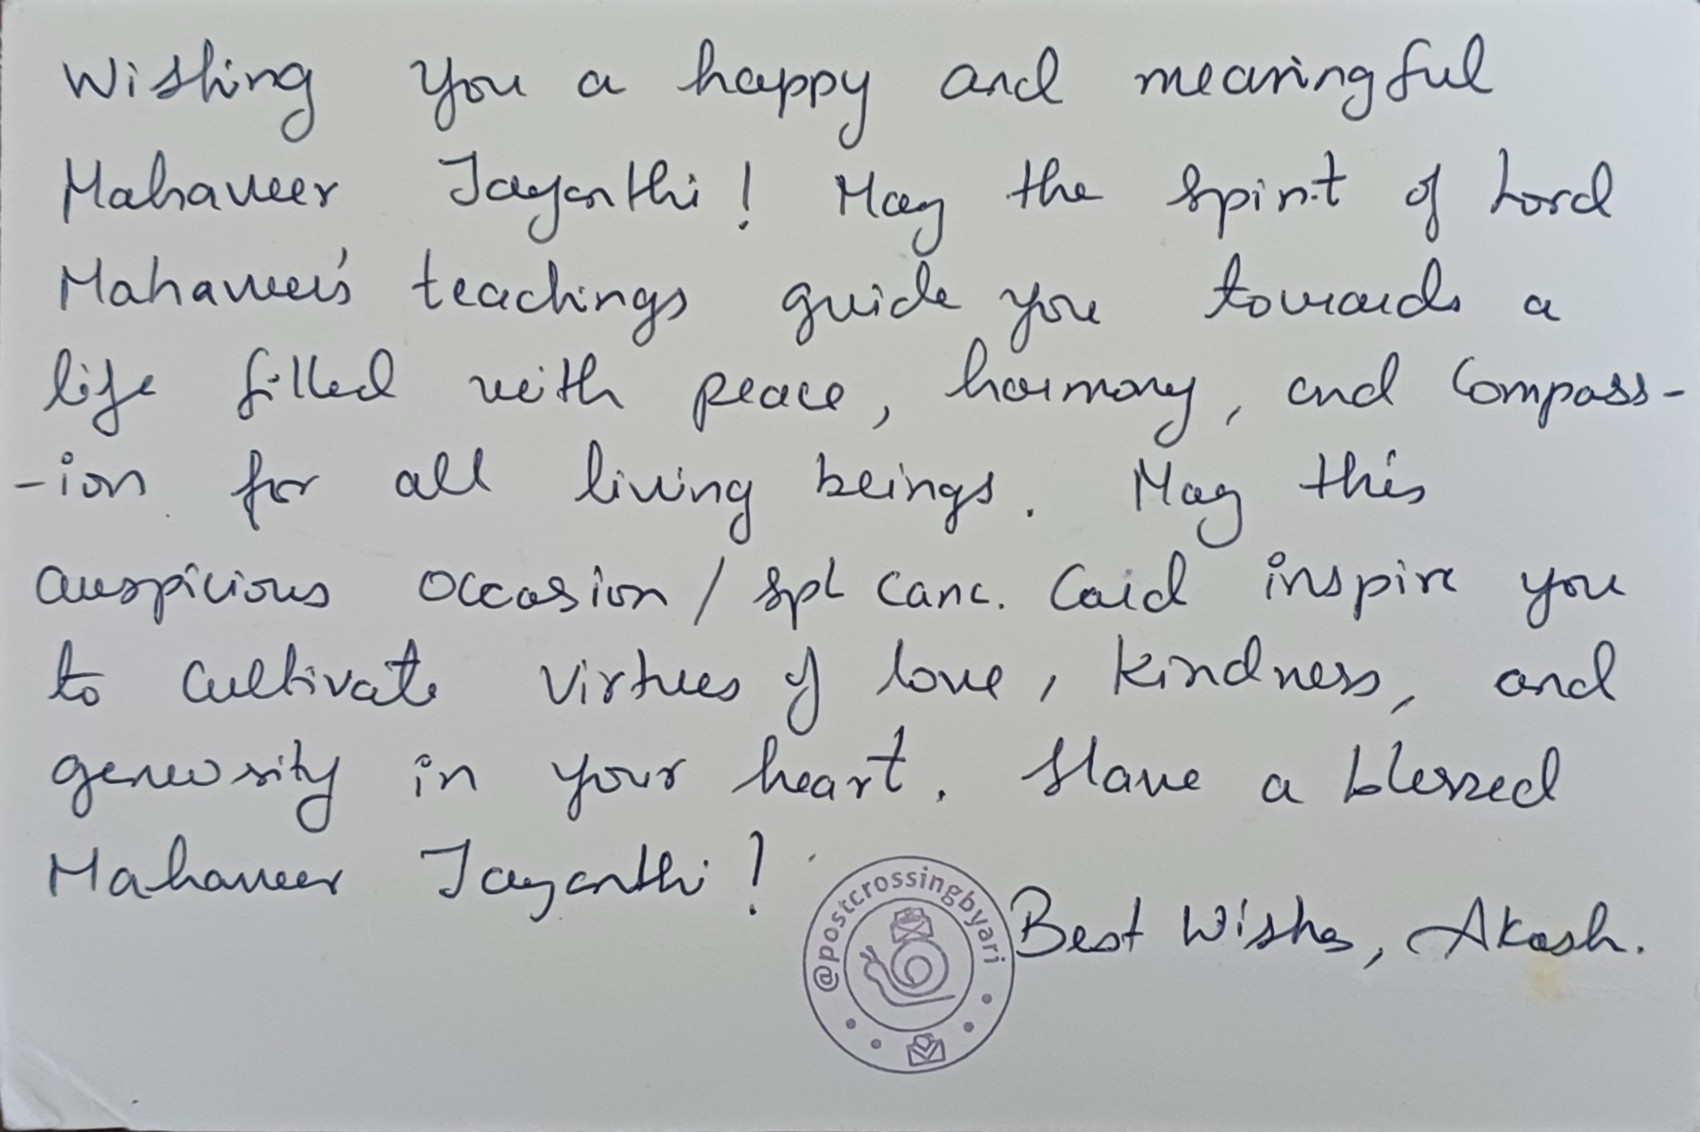 Wishing you a happy and meaningful
Mahaveer Jayanthi! May the spirit of Lord
Mahaveer's teachings guide you towards a
life filled with peace, harmony, and compass-
-ion for all living beings. May this
auspicious occasion / spl canc. Card inspire you
to cultivate virtues of love, kindness, and
generosity in your heart. Have a blessed
Mahaveer Jayanthi!
@postcrossingbyari
Best Wishes, Akash.